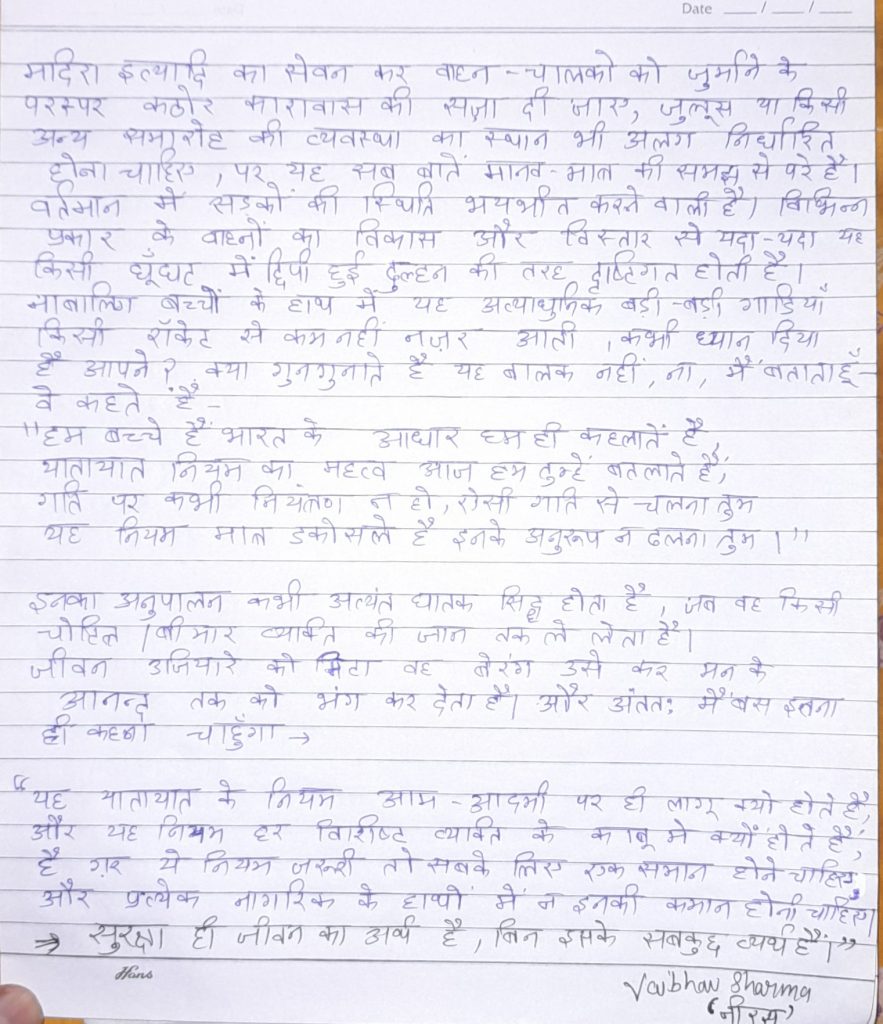 Date __/__/__
मदिरा इत्यादि का सेवन कर वाहन-चालको को जुर्माने के
परस्पर कठोर कारावास की सज़ा दी जाए, जुलूस या किसी
अन्य समारोह की व्यवस्था का स्थान भी अलग निर्धारित
होना चाहिए, पर यह सब बातें मानव-मात्र की समझ से परे है।
वर्तमान में सड़कों की स्थिति भयभीत करने वाली है। विभिन्न
प्रकार के वाहनों का विकास और विस्तार से यदा-यदा यह
किसी घूँघट में छिपी हुई दुल्हन की तरह दृष्टिगत होती है।
नाबालिग बच्चों के हाथ में यह अत्याधुनिक बड़ी-बड़ी गाडियाँ
किसी रॉकेट से कम नहीं नज़र आती, कभी ध्यान दिया
है आपने? क्या गुनगुनाते है यह बालक नहीं, ना, मैं बताता हूँ-
वे कहते हैं -
"हम बच्चे हैं भारत के आधार हम ही कहलातें है,
यातायात नियम का महत्व आज हम तुम्हें बतलाते हैं,
गति पर कभी नियंत्रण न हो, ऐसी गति से चलना तुम
यह नियम मात्र ढकोसले है इनके अनुरूप न ढलना तुम।"
इनका अनुपालन कभी अत्यंत घातक सिद्ध होता है, जब वह किसी
चोटिल / बीमार व्यक्ति की जान तक ले लेता है।
जीवन उजियारे को मिटा वह बेरंग उसे कर मन के
आनन्द तक को भंग कर देता है। और अंततः मैं बस इतना
ही कहना चाहुँगा →
"यह यातायात के नियम आम-आदमी पर ही लागू क्यो होते है,
और यह नियम हर विशिष्ट व्यक्ति के काबू मे क्यों होते है,
है ग़र ये नियम जरूरी तो सबके लिए एक समान होने चाहिए,
और प्रत्येक नागरिक के हाथों में न इनकी कमान होनी चाहिए।
⇒ सुरक्षा ही जीवन का अर्थ है, बिन इसके सबकुछ व्यर्थ है।"
Hans
Vaibhav Sharma
'नीरस'